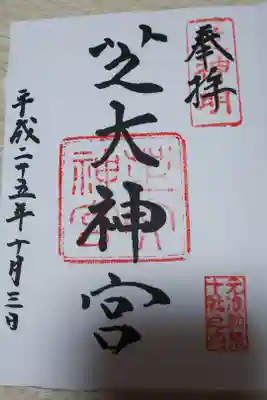 奉拝
芝大神宮
平成二十五年十月三日
芝大神宮